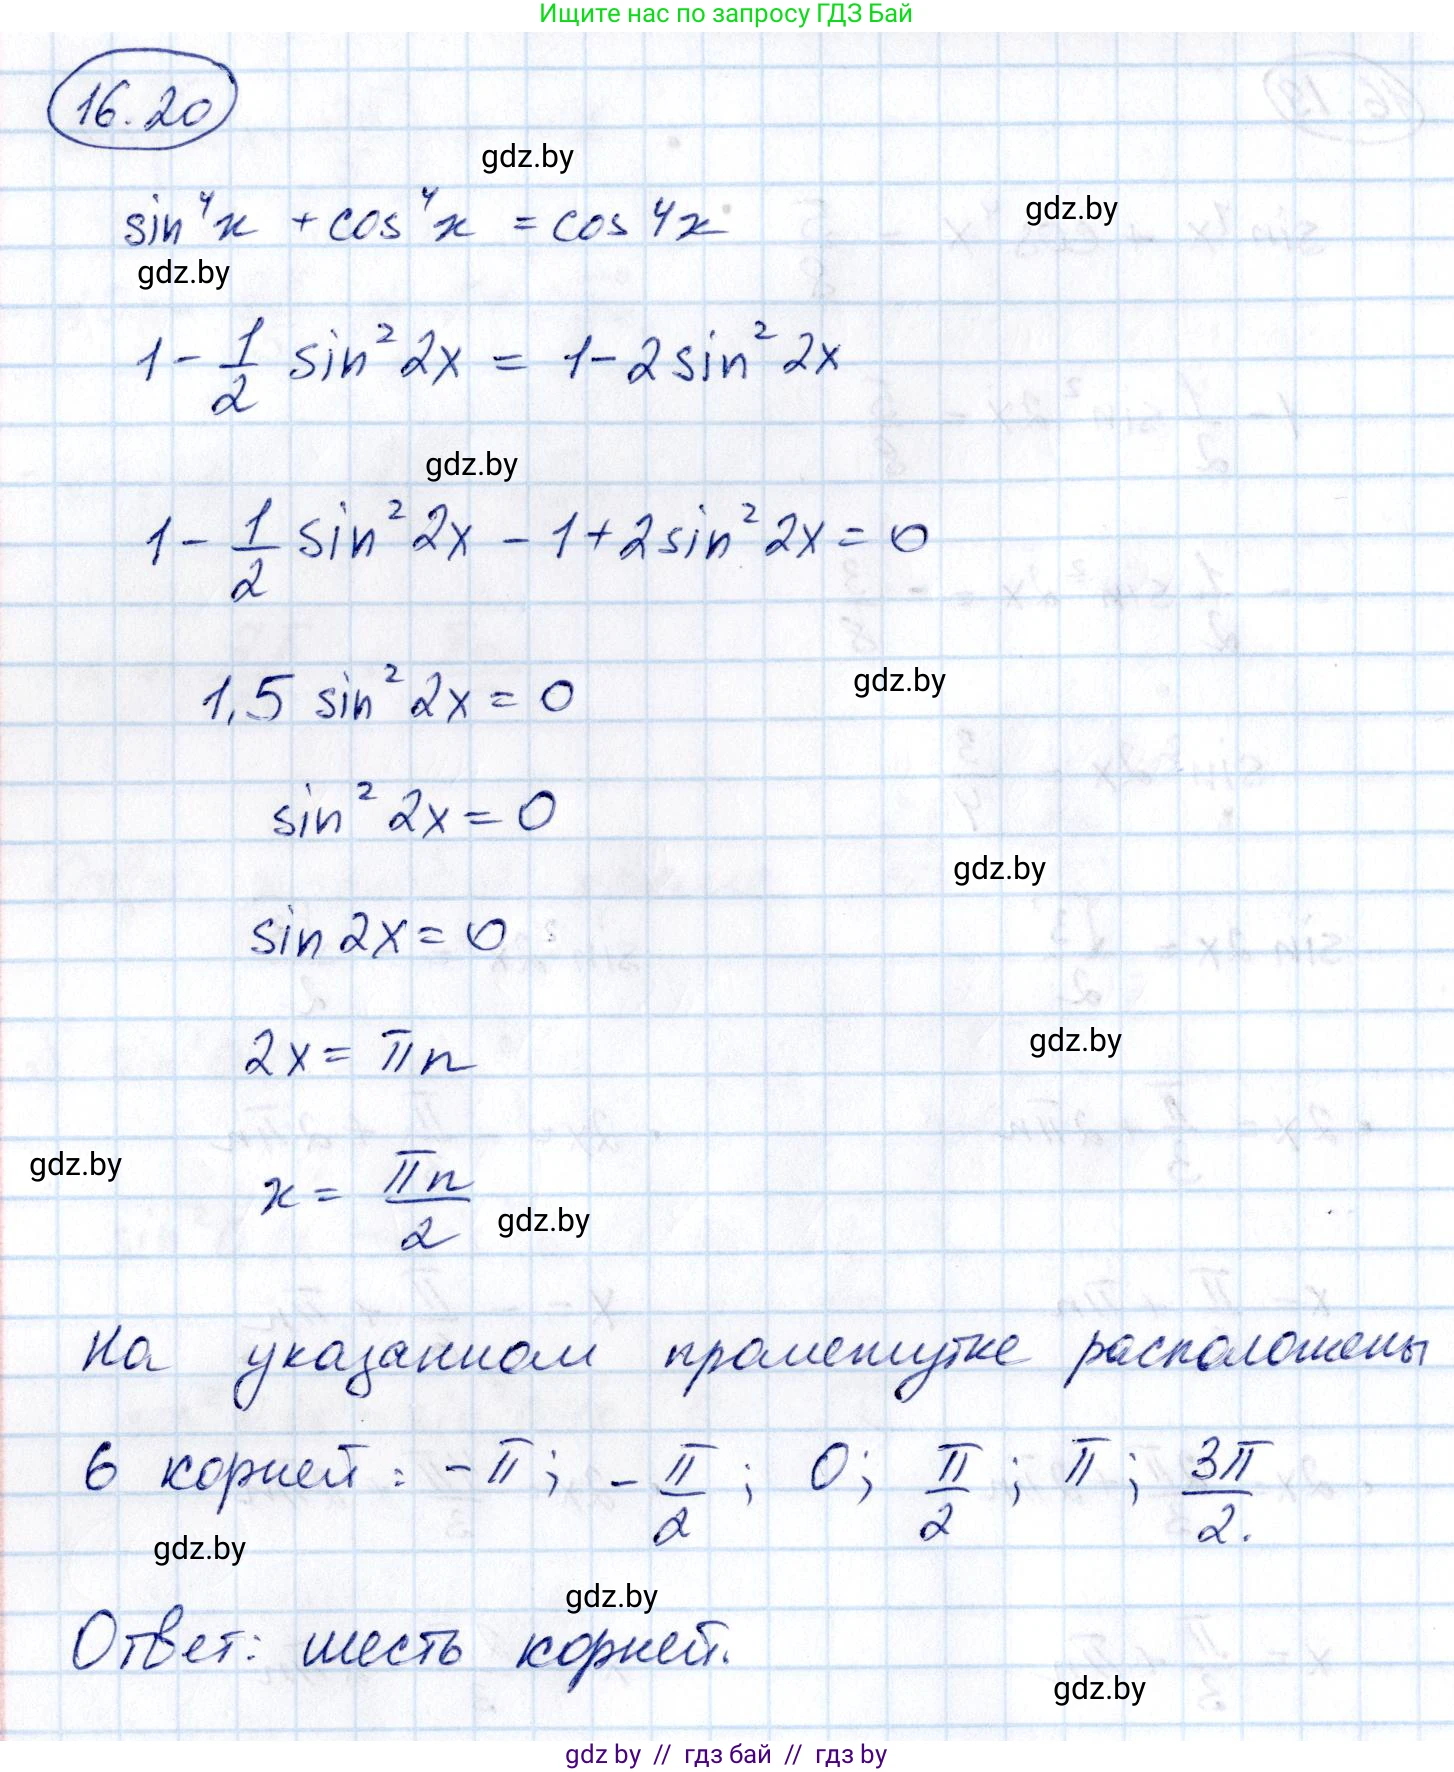 Ищите нас по запросу ГДЗ Бай
16.20
gdz.by
gdz.by
sin⁴x + cos⁴x = cos 4x
gdz.by
1 - 1/2 sin² 2x = 1 - 2 sin² 2x
gdz.by
1 - 1/2 sin² 2x - 1 + 2 sin² 2x = 0
gdz.by
1,5 sin² 2x = 0
sin² 2x = 0
gdz.by
sin 2x = 0
gdz.by
2x = πn
gdz.by
x = πn/2
gdz.by
На указанном промежутке расположены
6 корней: -π; -π/2; 0; π/2; π; 3π/2.
gdz.by
gdz.by
Ответ: шесть корней.
gdz.by
gdz by // гдз бай // гдз by